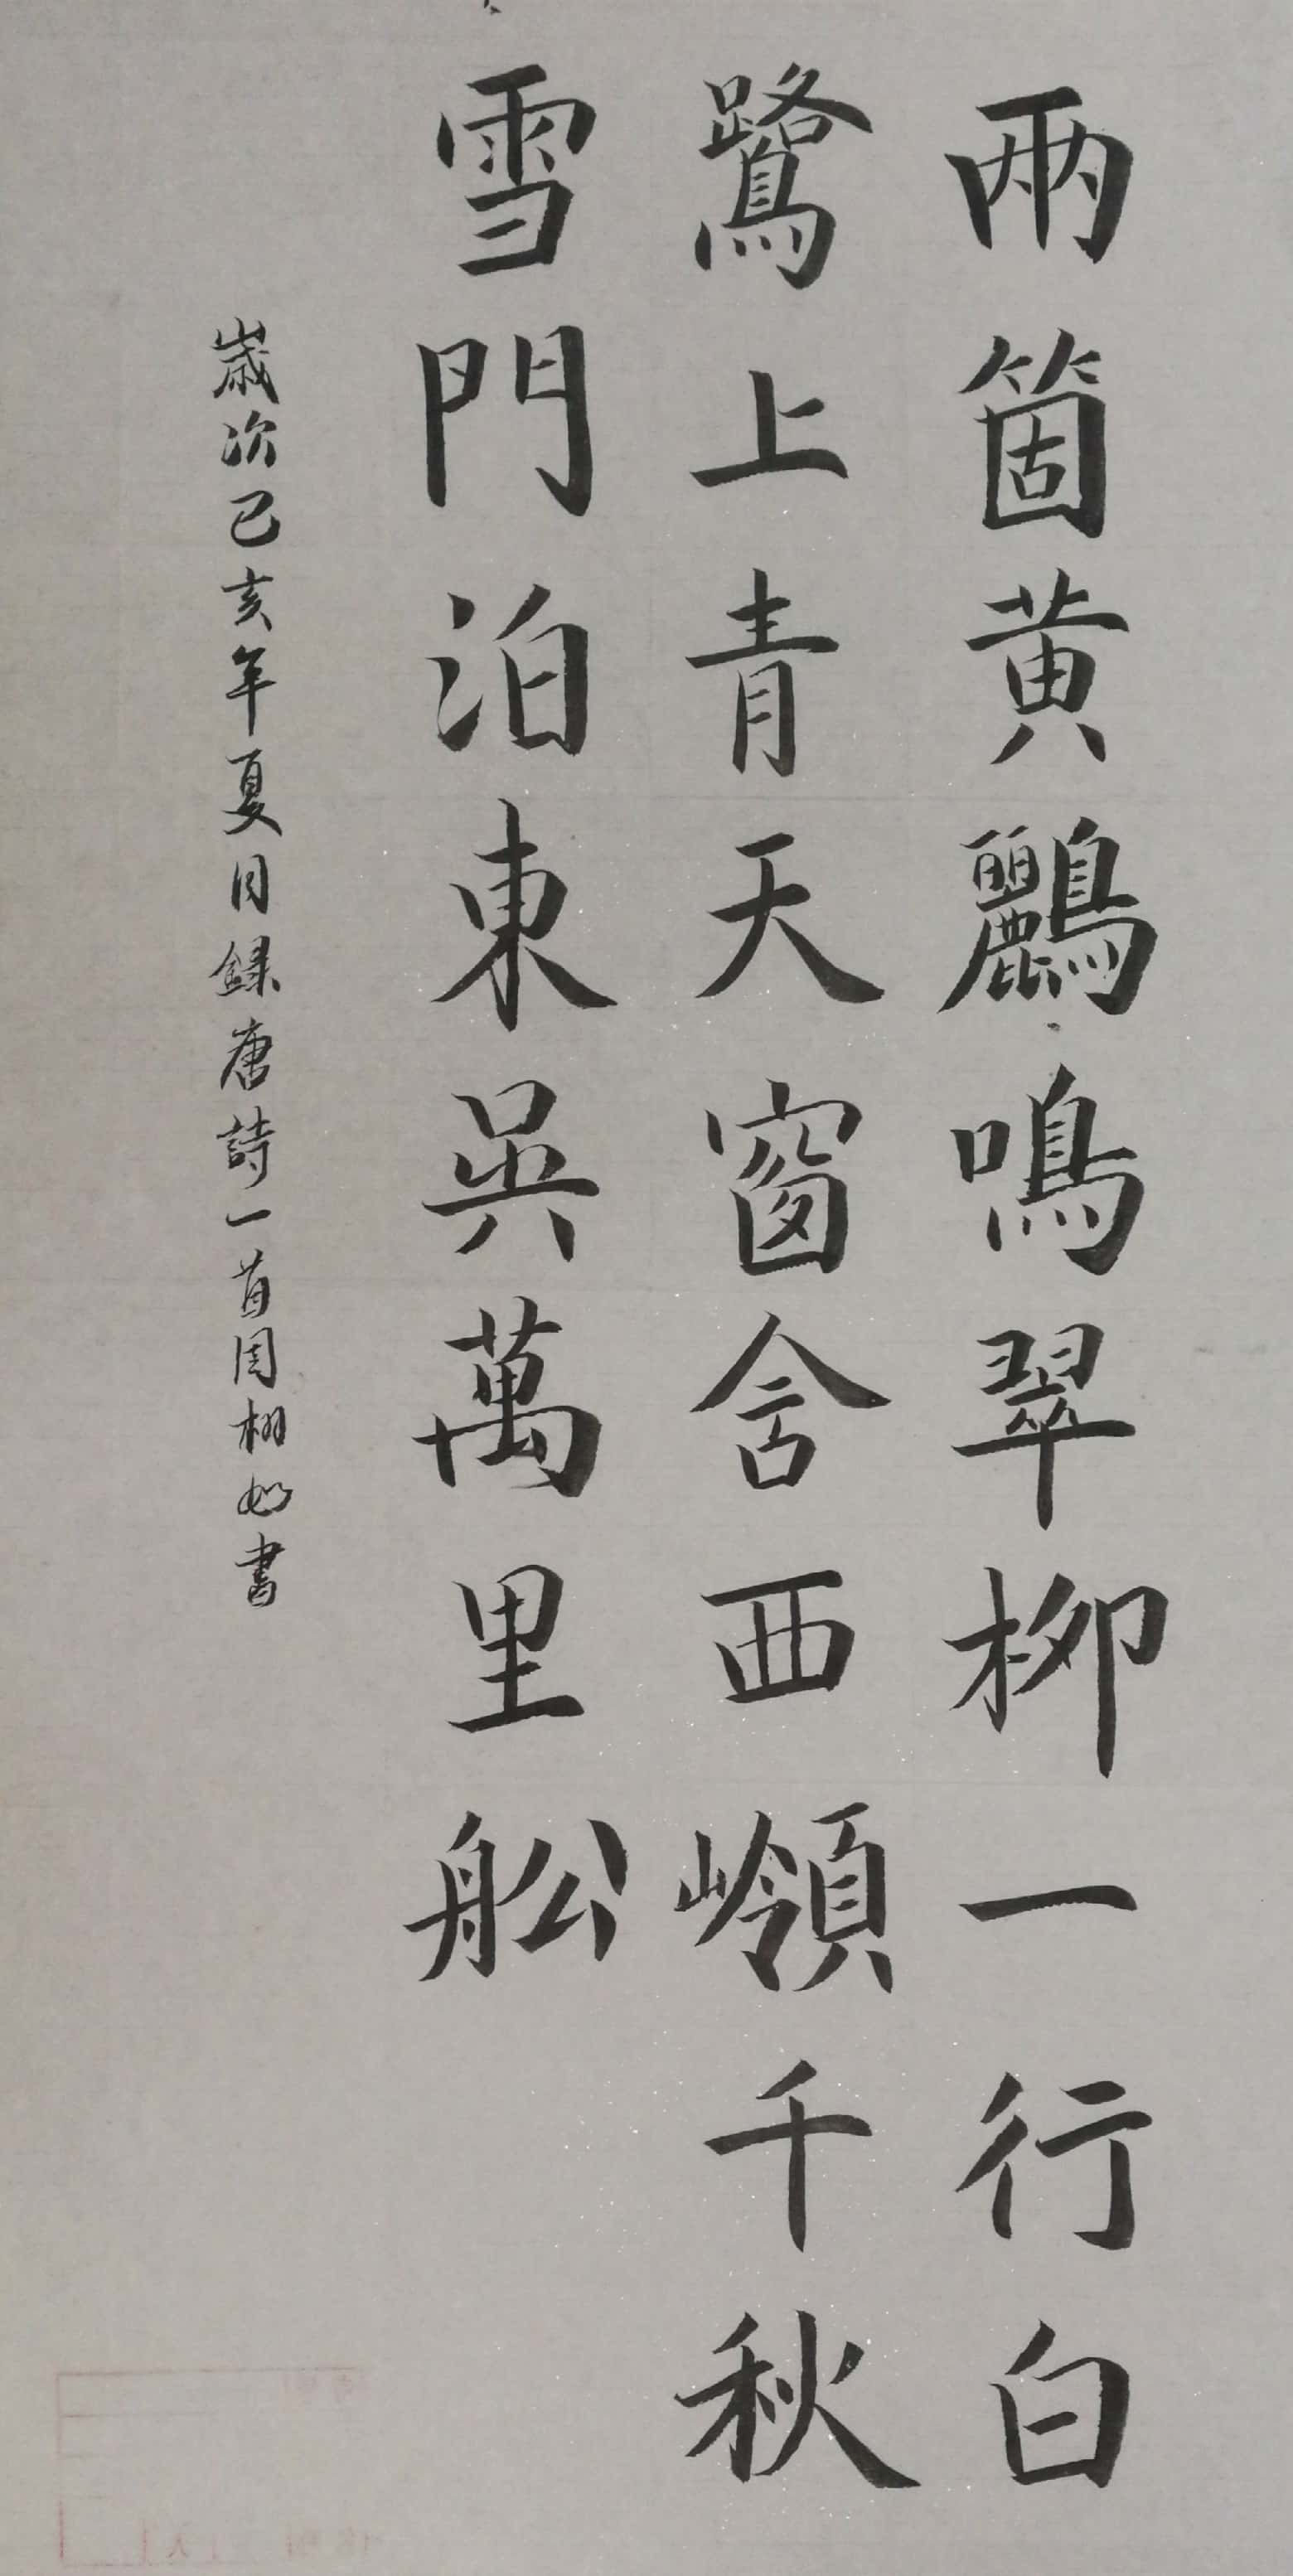 兩箇黄鸝鳴翠柳一行白
鷺上青天窗含西嶺千秋
雪門泊東吳萬里舩
歲次己亥年夏月録唐詩一首周栩如書